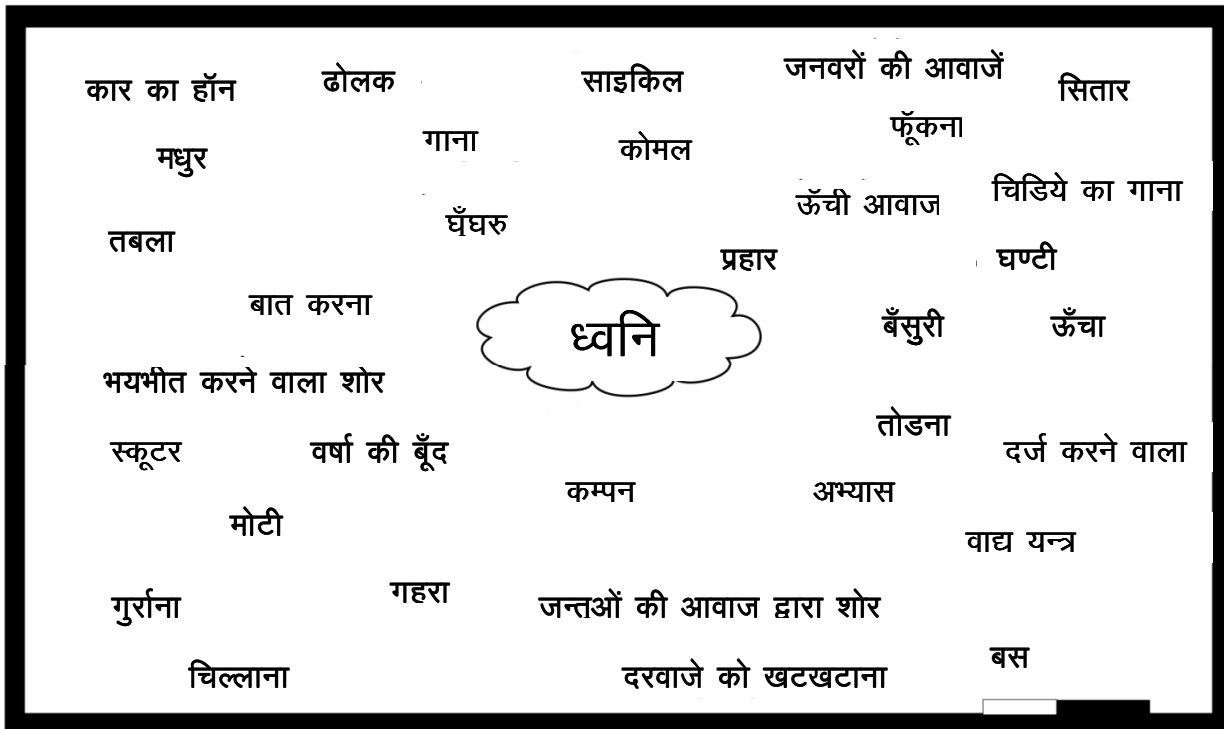 कार का हॉन
ढोलक
साइकिल
जनवरों की आवाजें
सितार
मधुर
गाना
कोमल
फूॅकना
चिडिये का गाना
तबला
घॅुंघरु
ऊॅची आवाज
प्रहार
घण्टी
बात करना
ध्वनि
बॅंसुरी
ऊॅंचा
भयभीत करने वाला शोर
तोडना
स्कूटर
वर्षा की बूॅंद
दर्ज करने वाला
कम्पन
अभ्यास
मोटी
वाद्य यन्त्र
गुर्राना
गहरा
जन्तओं की आवाज द्वारा शोर
चिल्लाना
दरवाजे को खटखटाना
बस